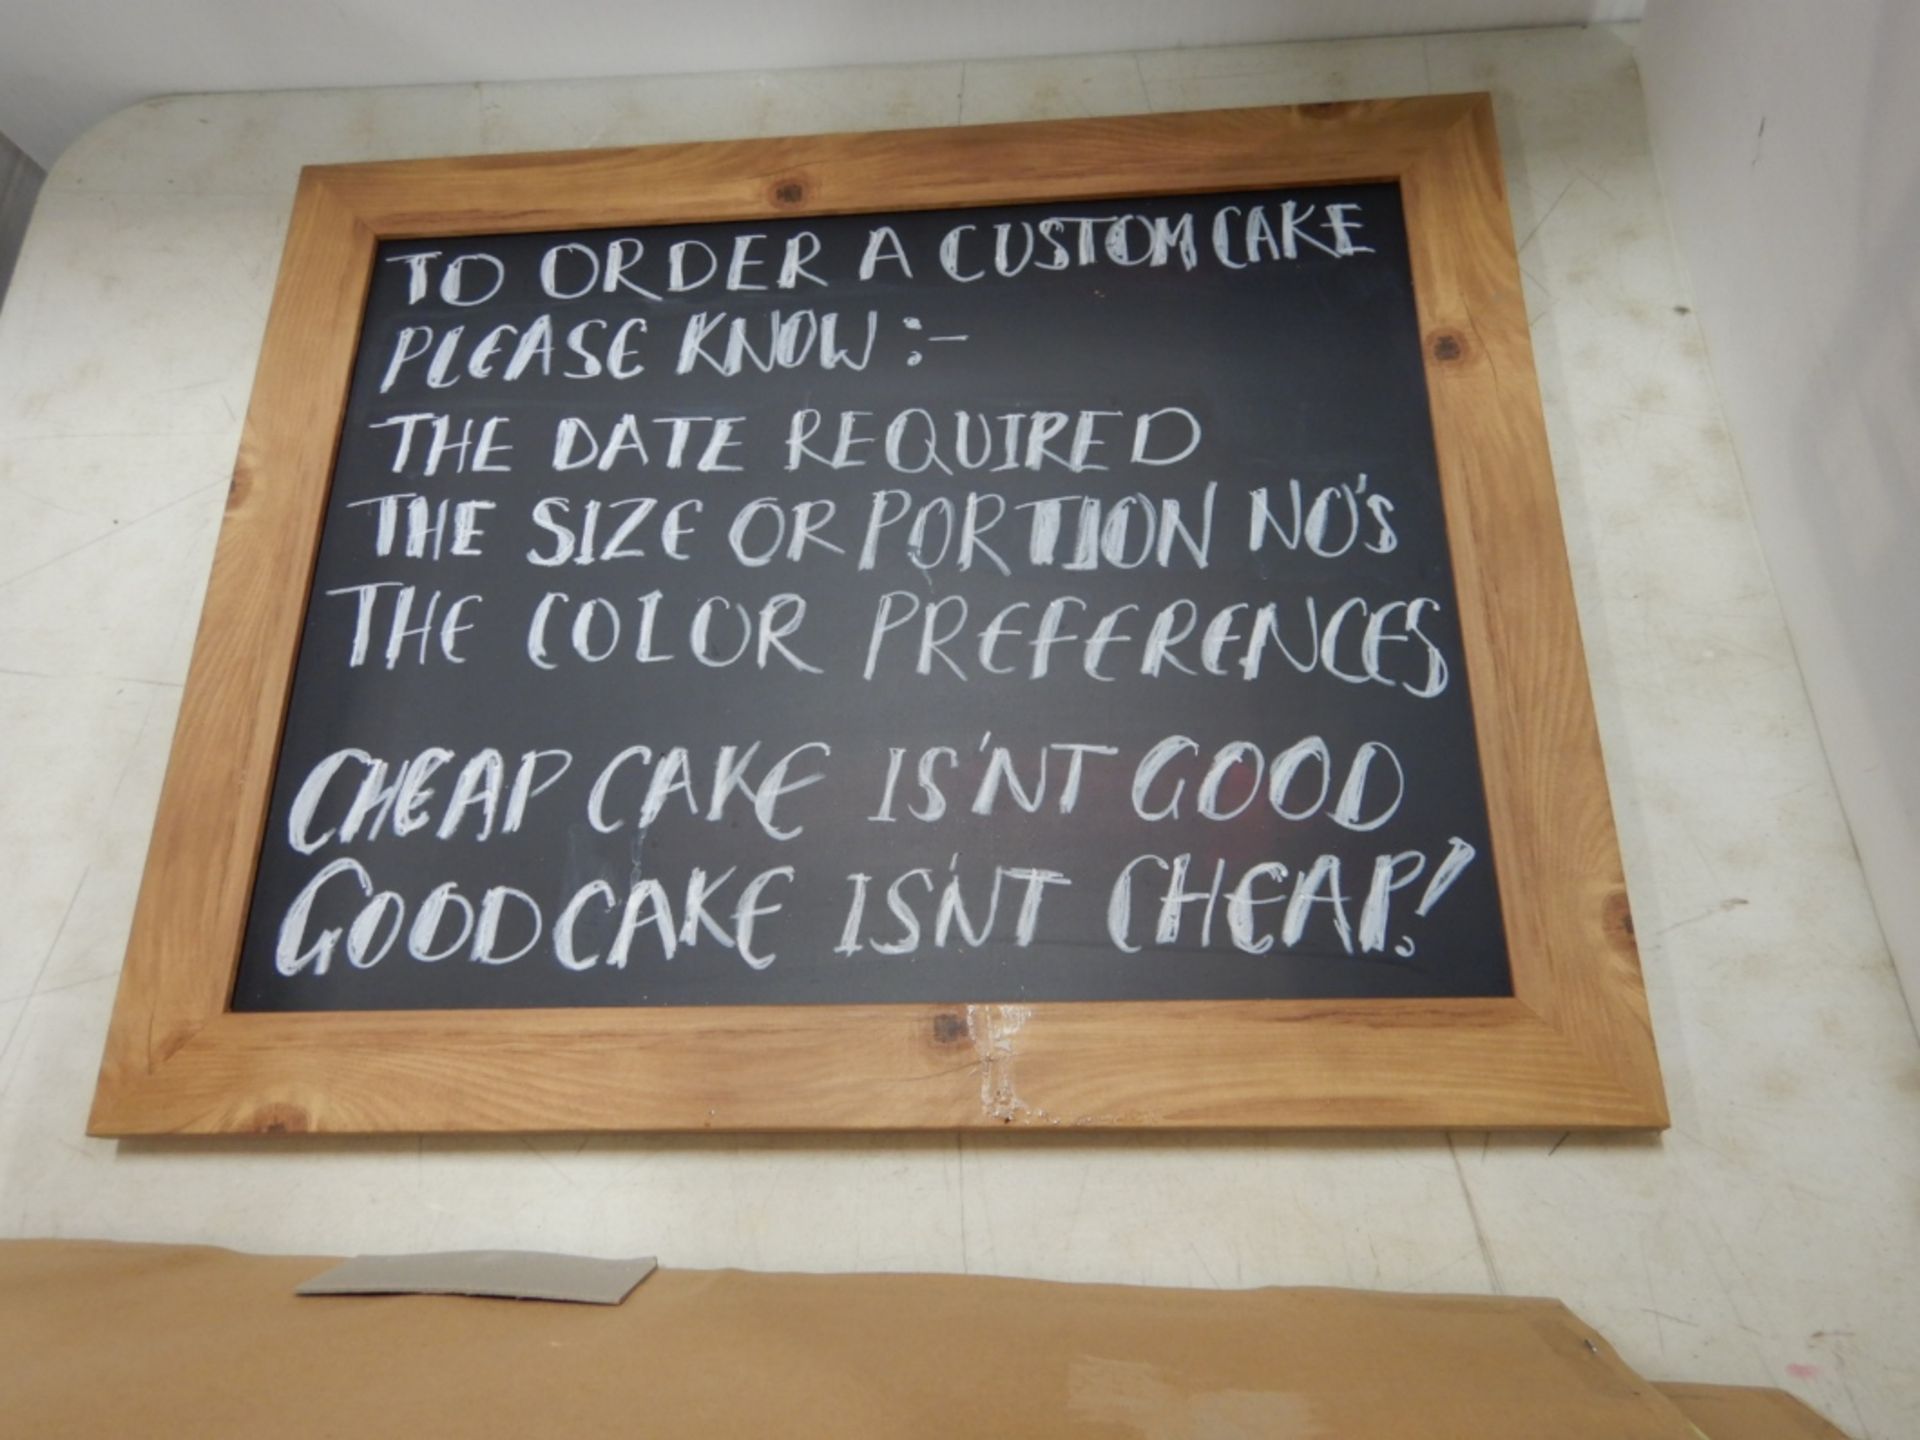 TO ORDER A CUSTOM CAKE
PLEASE KNOW :-
THE DATE REQUIRED
THE SIZE OR PORTION NO'S
THE COLOR PREFERENCES
CHEAP CAKE IS'NT GOOD
GOOD CAKE IS'NT CHEAP!